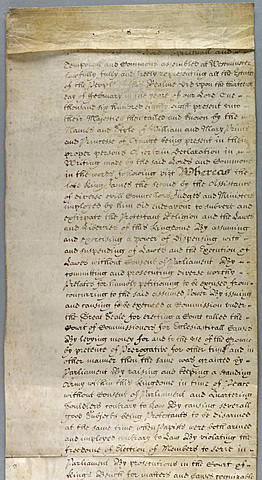 Lords Spirituall and
Temporall and Commons assembled at Westminster
lawfully fully and freely representing all the Estates
of the People of this Realme did upon the thirteenth
day of February in the yeare of our Lord One
thousand six hundred eighty eight present unto
their Majesties then called and knowne by the
Names and Stile of William and Mary Prince
and Princesse of Orange being present in their
proper persons a certaine Declaration in
Writing made by the said Lords and Commons
in the words following viz Whereas the
late King James the second by the Assistance
of diverse evill Counsellors Judges and Ministers
imployed by him did endeavour to subvert and
extirpate the Protestant Religion and the Lawes
and Liberties of this Kingdome By assuming
and exercising a power of Dispensing with
and suspending of Lawes and the Execution of
Lawes without consent of Parliament By
committing and prosecuting diverse worthy
Prelates for humbly petitioning to be excused from
concurring to the said assumed power By issuing
and causing to be executed a Commission under
the Great Seale for erecting a Court called the
Court of Commissioners for Ecclesiasticall Causes
By levying money for and to the use of the Crowne
by pretence of Prerogative for other time and in
other manner then the same was granted by
Parliament By raising and keeping a standing
Army within this Kingdome in time of Peace
without consent of Parliament and Quartering
Souldiers contrary to Law By causing severall
good Subjects being Protestants to be disarmed
at the same time when Papists were both armed
and imployed contrary to Law By violating the
freedome of Election of Members to serve in
Parliament By prosecutions in the Court of
Kings Bench for matters and causes cognizable